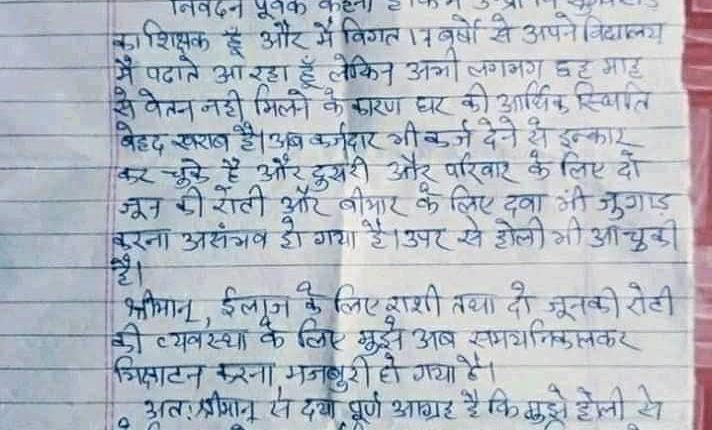 निवेदन पूर्वक कहना है कि मैं
का शिक्षक हूँ और मैं विगत 17 वर्षों से अपने विद्यालय
में पढाते आ रहा हूँ लेकिन अभी लगभग छह माह
से वेतन नही मिलने के कारण घर की आर्थिक स्थिति
बेहद खराब है। अब कर्जदार भी कर्ज देने से इन्कार
कर चुके है और दुसरी और परिवार के लिए दो
जून की रोटी और बीमार के लिए दवा भी जुगाड
करना असंभव हो गया है। उपर से होली भी आ चुकी
है।
श्रीमान्, ईलाज के लिए राशी तथा दो जून की रोटी
की व्यवस्था के लिए मुझे अब समय निकालकर
भिक्षाटन करना मजबुरी हो गया है।
अत: श्रीमान् से दया पूर्ण आग्रह है कि मुझे होली से